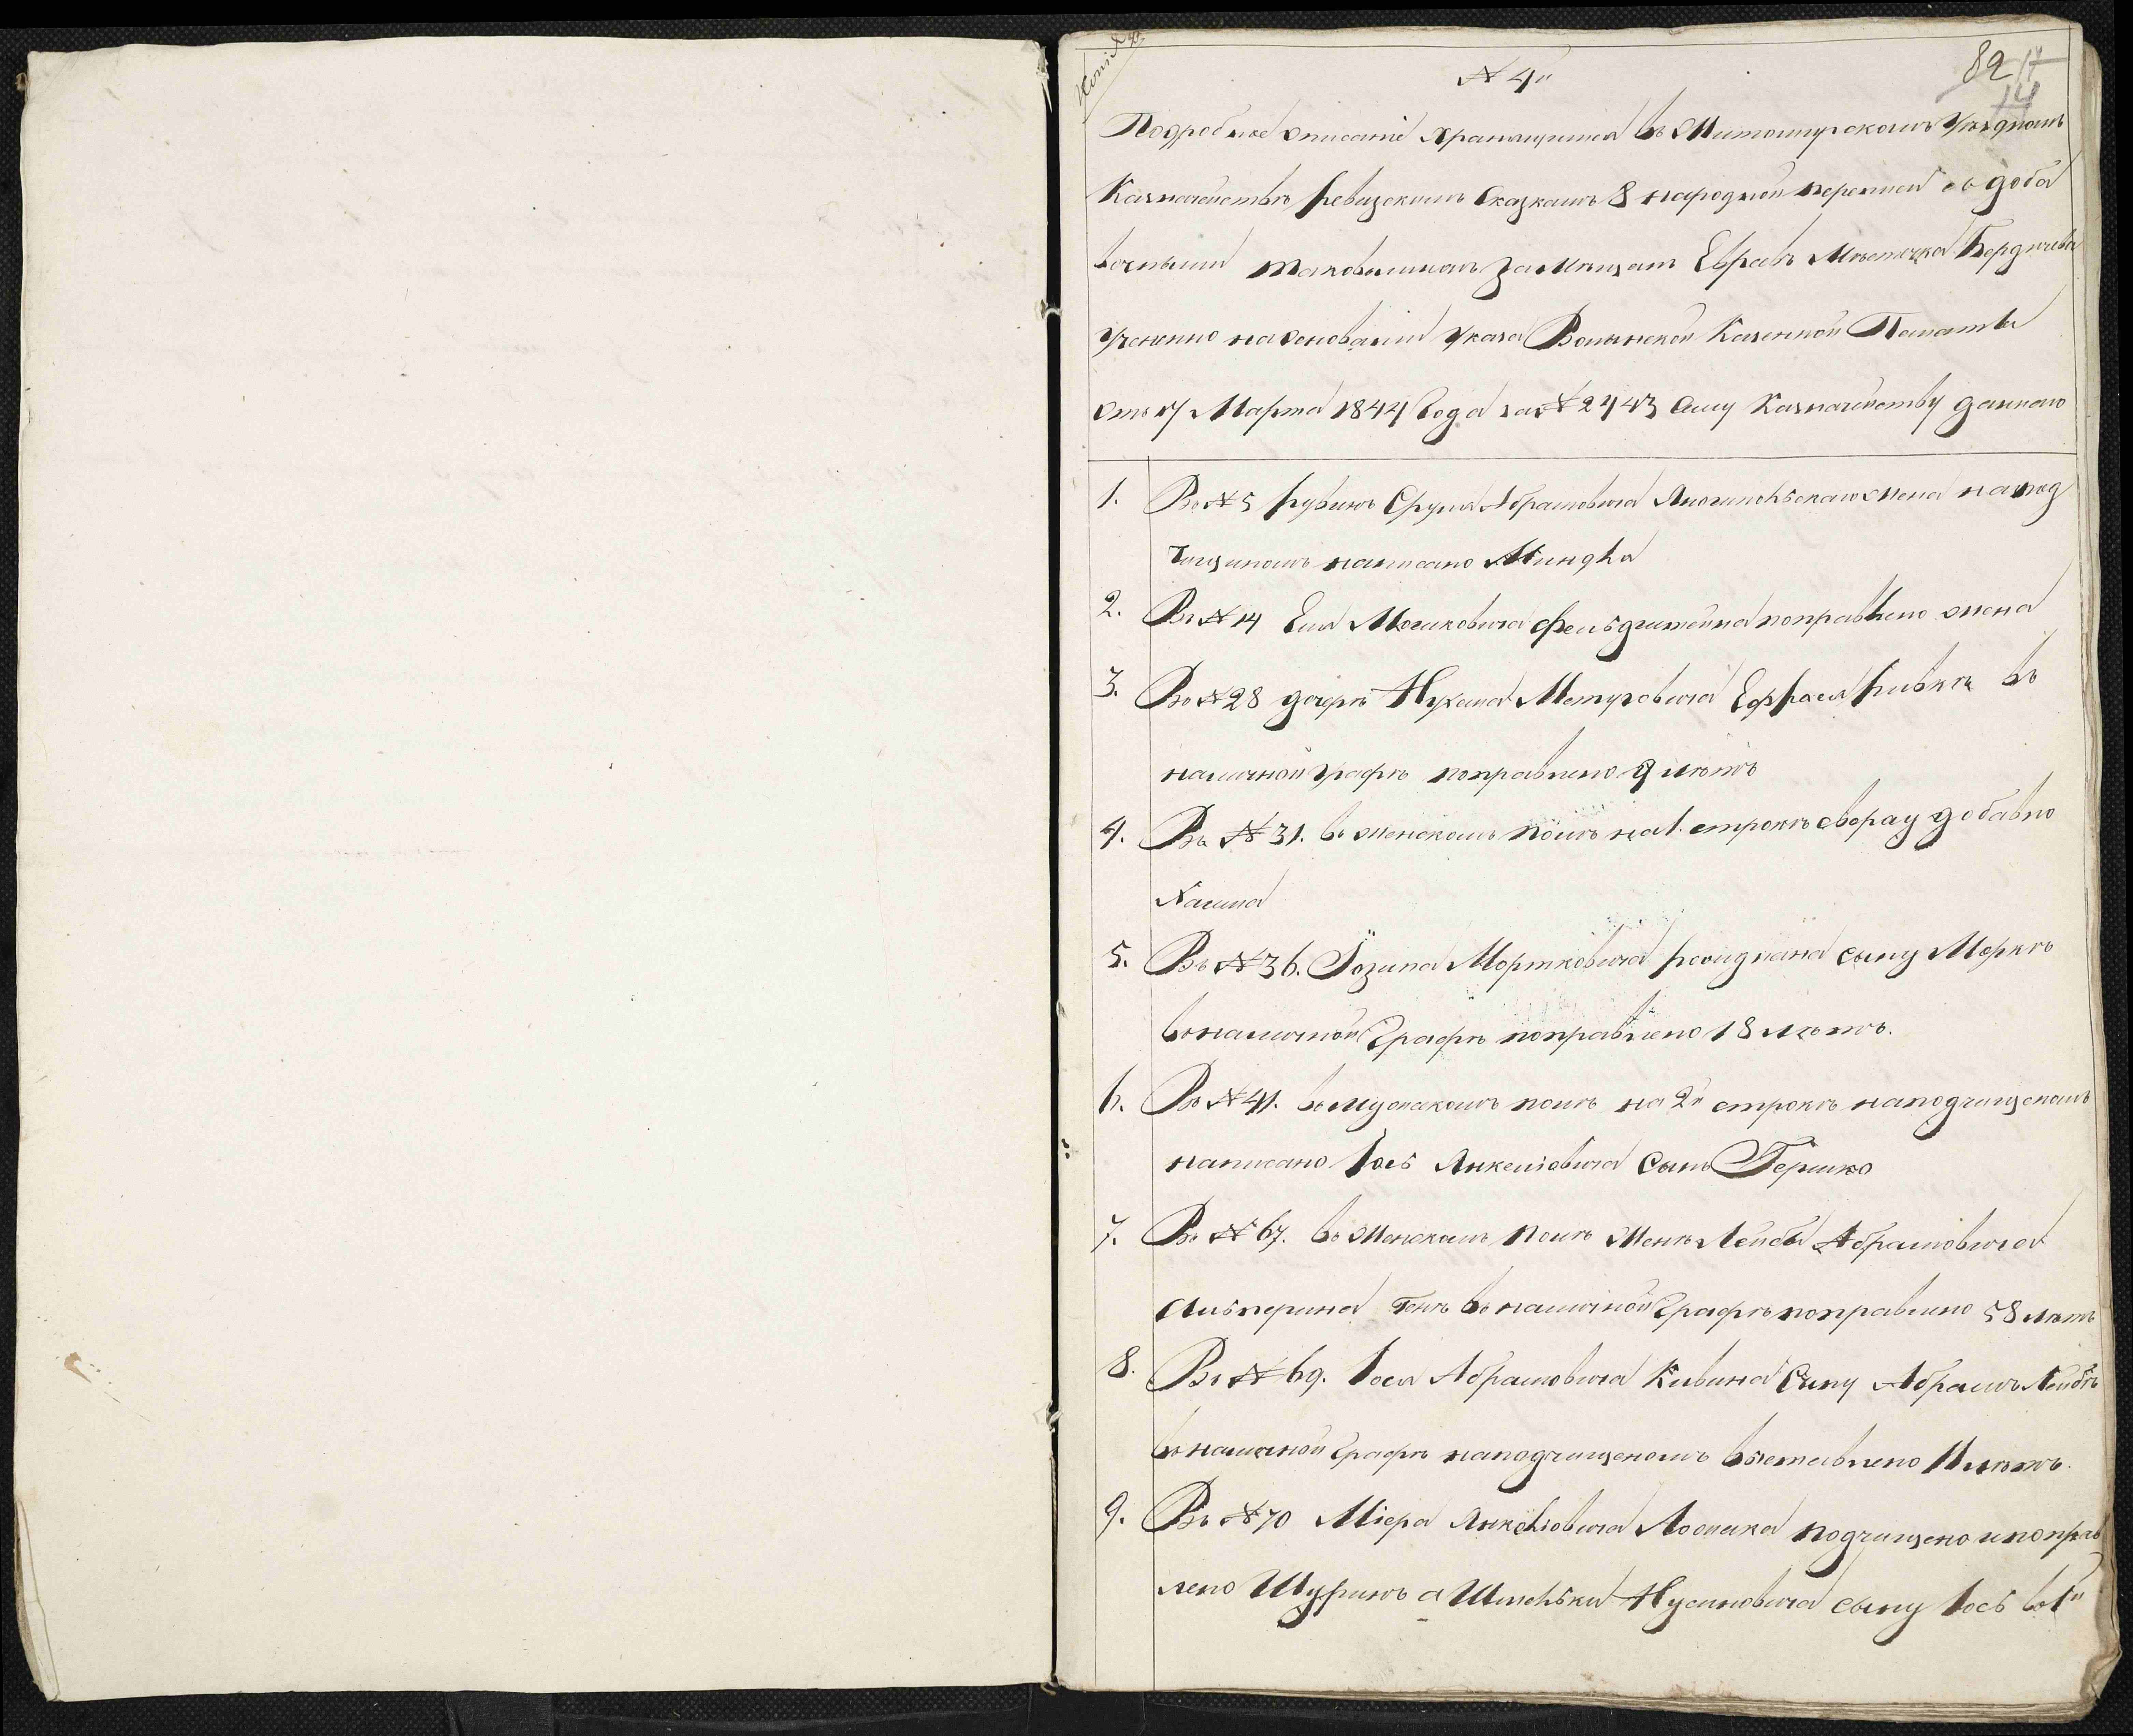 Копія
N 4й
82
Подробное описаніе хранящимся въ Житомирскомъ Уѣздномъ
Казначействѣ Ревизскимъ Сказкамъ 8 народной переписи съ доба
вочными таковымижъ за Мѣщанъ Евреевъ Мѣстечка Бердичева
Учинено на основаніи Указа Волынской Казенной Палаты
отъ 17 Марта 1844 Года за N 2743 Сему Казначейству даннаго
1. Въ N 5 Рубинъ Сруля Абрамовича жена на под
чищеномъ написано Миндля
2. Въ N 14 Еля Мошковича Фельдштейна поправлено жена
3. Въ N 28 дочерѣ Нухима Ривкѣ въ
наличной графѣ поправлено 9 лѣтъ
4. Въ N 31. въ женскомъ полѣ на 1. строкѣ сверху добавно
Хаима
5. Въ N 36. Мортковича Ройдмана сыну Меркѣ
въ наличной Графѣ поправлено 18 лѣтъ.
6. Въ N 41. въ мужскомъ полѣ на 2й строкѣ на подчищеномъ
написано Іось Янкелiовича сынъ Гершко
7. Въ N 67. въ Женскомъ полѣ Женѣ Лейбы Абрамовича
Альперина въ наличной Графѣ поправлено 58 лѣтъ
8. Въ N 69. Іося Абрамовича Кивина Сыну Абрамъ Лейбѣ
въ наличной Графѣ на подчищеномъ выставлено 11 лѣтъ.
9. Въ N 70 Міера Янкеліовича подчищено и поправ
лено Шуринъ а Шмельки Нусиновича сыну Іось въ 1й